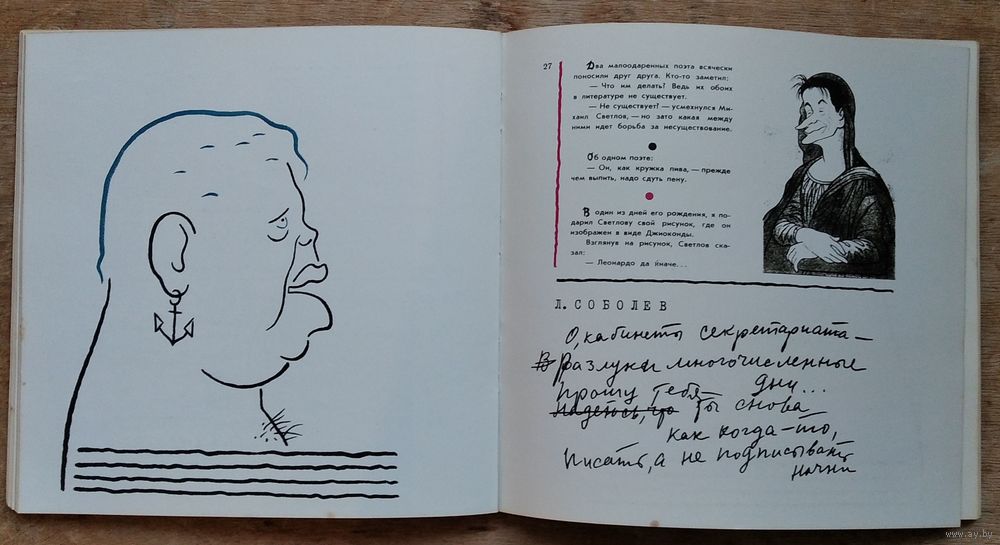 27
Два малоодаренных поэта всячески
поносили друг друга. Кто-то заметил:
— Что им делать? Ведь их обоих
в литературе не существует.
— Не существует? — усмехнулся Ми-
хаил Светлов, — но зато какая между
ними идет борьба за несуществование.
Об одном поэте:
— Он, как кружка пива, — прежде
чем выпить, надо сдуть пену.
В один из дней его рождения, я по-
дарил Светлову свой рисунок, где он
изображен в виде Джиоконды.
Взглянув на рисунок, Светлов ска-
зал:
— Леонардо да йначе...
Л. СОБОЛЕВ
О, кабинеты секретариата —
В разлуки многочисленные
дни...
Прошу тебя —
Надеюсь, что ты снова
как когда-то,
Писать, а не подписывать
начни
www.ay.by